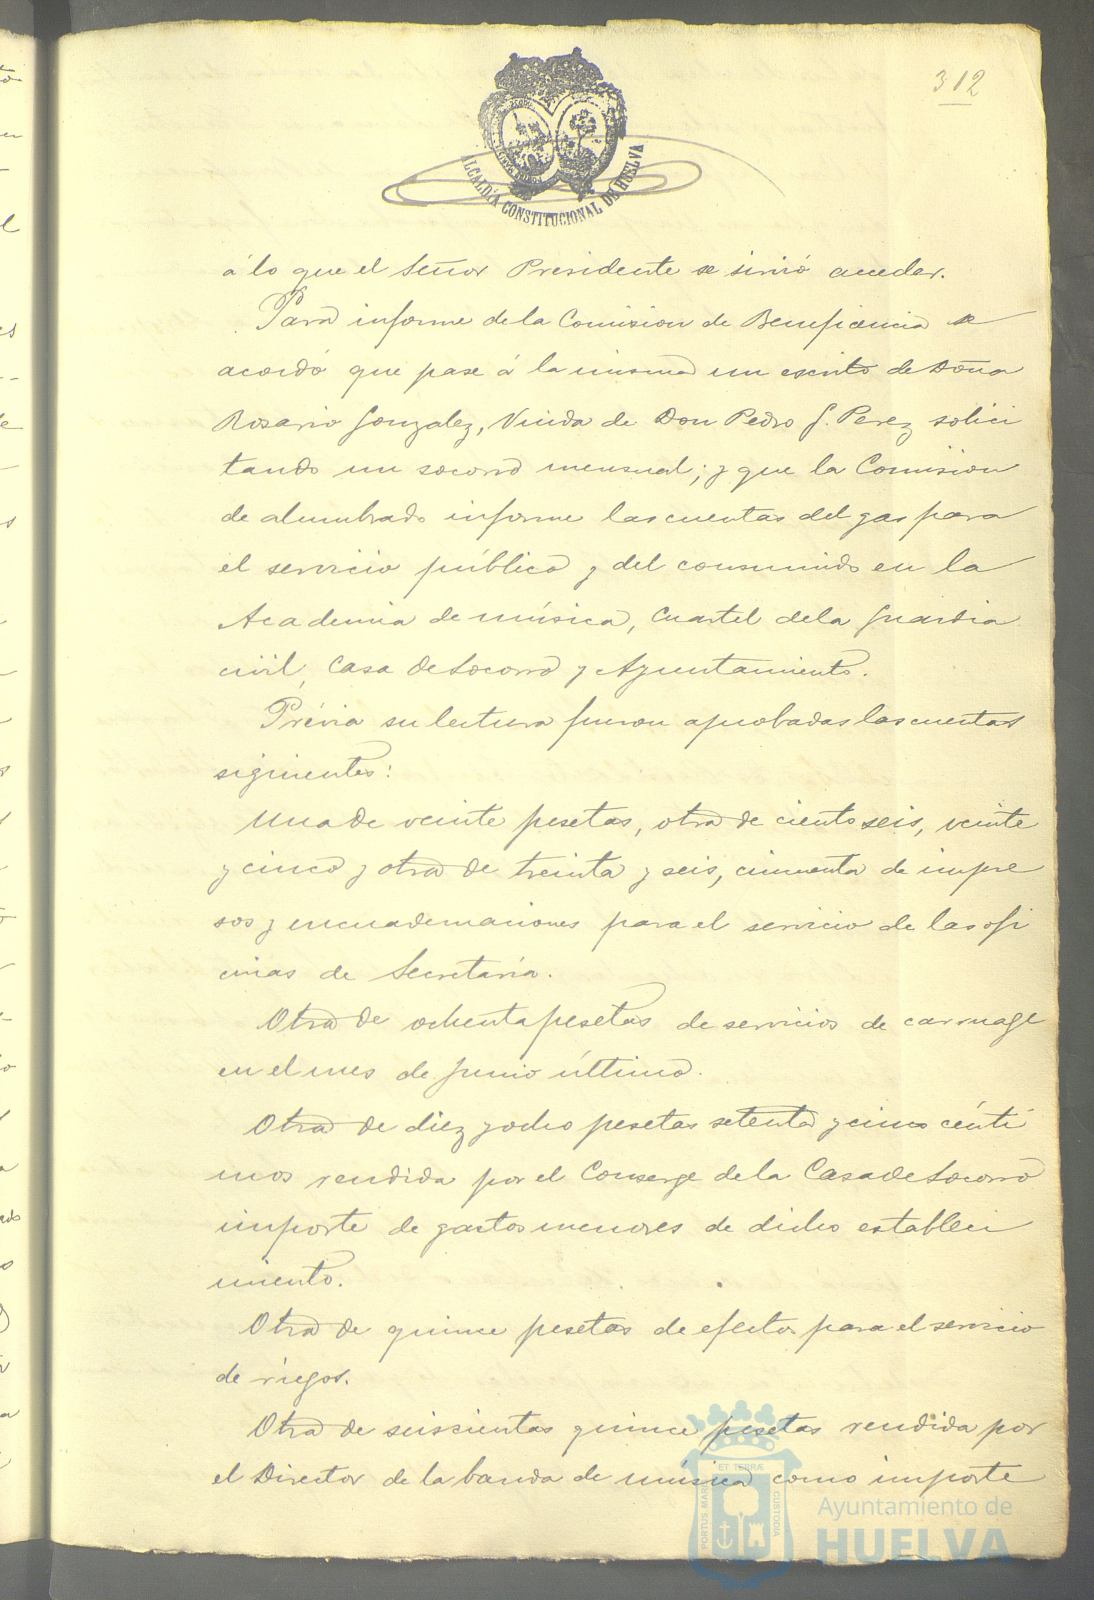 312
ALCALDÍA CONSTITUCIONAL DE HUELVA
á lo que el Señor Presidente se sirvió acceder.
Para informe de la Comision de Beneficencia se
acordó que pase á la misma un escrito de Doña
Rosario Gonzalez, Viuda de Don Pedro G. Perez solici
tando un socorro mensual; y que la Comision
de alumbrado informe las cuentas del gas para
el servicio público y del consumido en la
Academia de música, Cuartel de la Guardia
civil, Casa de Socorro y Ayuntamiento.
Prévia su lectura fueron aprobadas las cuentas
siguientes:
Una de veinte pesetas, otra de ciento seis, veinte
y cinco y otra de treinta y seis, cincuenta de impre
sos y encuadernaciones para el servicio de las ofi
cinas de Secretaría.
Otra de ochenta pesetas de servicios de carruage
en el mes de Junio último.
Otra de diez y ocho pesetas setenta y cinco cénti
mos rendida por el Conserge de la Casa de Socorro
importe de gastos menores de dicho estableci
miento.
Otra de quince pesetas de efectos para el servicio
de riegos.
Otra de seiscientas quince pesetas rendida por
el Director de la banda de música como importe
PORTUS MARIS ET TERRÆ CUSTODIA
Ayuntamiento de
HUELVA